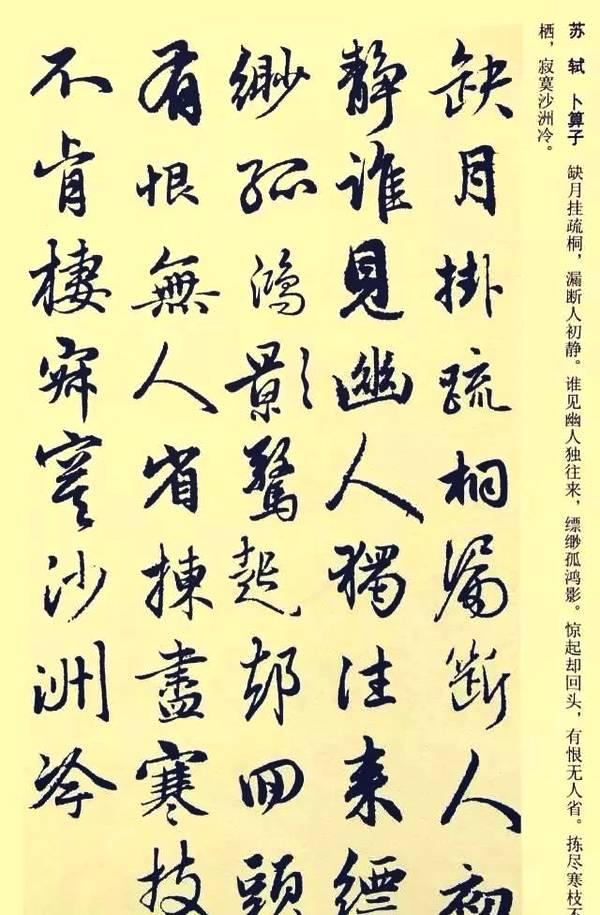 苏轼 卜算子 缺月挂疏桐，漏断人初静。谁见幽人独往来，缥缈孤鸿影。惊起却回头，有恨无人省。拣尽寒枝不
栖，寂寞沙洲冷。
缺月掛疏桐漏斷人初
靜誰見幽人獨往来縹
緲孤鴻影驚起却回頭
有恨無人省揀盡寒枝
不肯棲寂寞沙洲冷